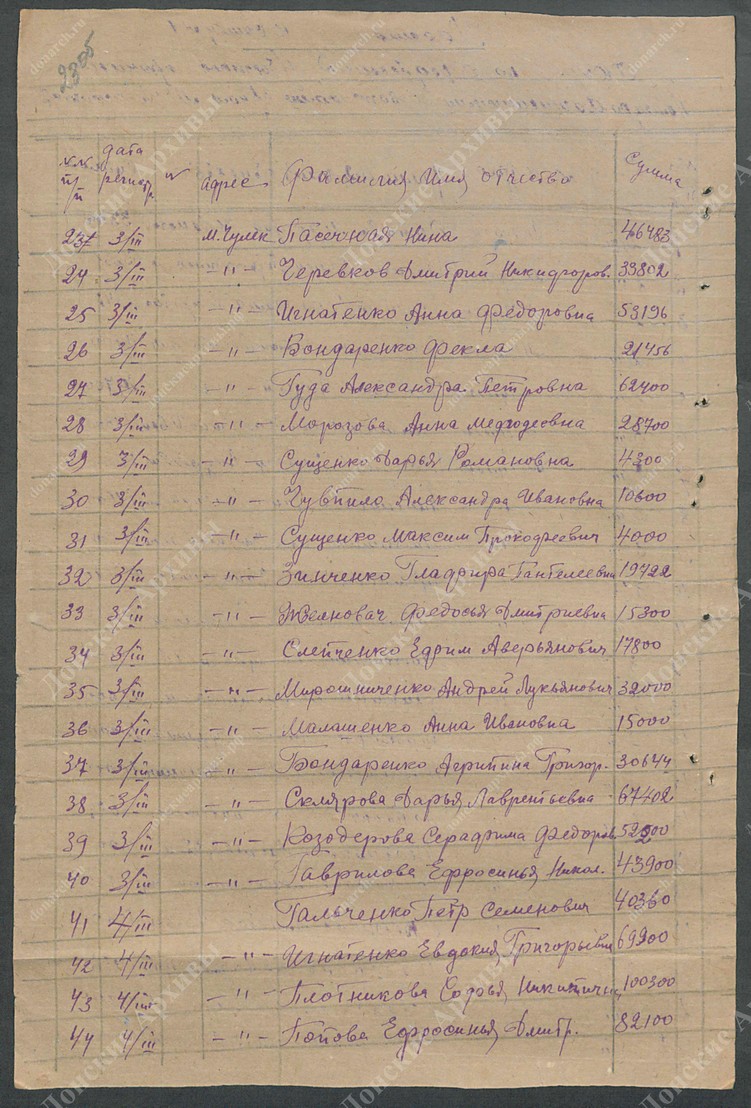 2355
№№ п/п дата регистр. № адрес Фамилия Имя отчество Сумма
23 3/III М.Чулек Пасечная Нина 46483
24 3/III -"- Черевков Дмитрий Никифоров. 33802
25 3/III -"- Игнатенко Анна Федоровна 53196
26 3/III -"- Бондаренко Фекла 21456
27 3/III -"- Гуда Александра Петровна 62400
28 3/III -"- Морозова Анна Мефодеевна 28700
29 3/III -"- Сущенко Дарья Романовна 4300
30 3/III -"- Чувпило Александра Ивановна 10600
31 3/III Сущенко Максим Прокофеевич 4000
32 3/III -"- Зинченко Глафира Пантелеевна 19722
33 3/III -"- Федосья Дмитриевна 15300
34 3/III -"- Слепченко Ефрим Аверьянович 17800
35 3/III -"- Мирошниченко Андрей Лукьянович 32000
36 3/III -"- Малашенко Анна Ивановна 15000
37 3/III -"- Бондаренко Агрипина Григор. 30644
38 3/III -"- Склярова Дарья Лаврентьевна 67402
39 3/III -"- Козодерова Серафима Федоров.
40 3/III -"- Гаврилова Ефросинья Никол. 43900
41 4/III Гальченко Пётр Семенович 40360
42 4/III -"- Игнатенко Евдокия Григорьевн 69900
43 4/III -"- Плотникова 100300
44 4/III -"- Попова Ефросинья Дмитр. 82100